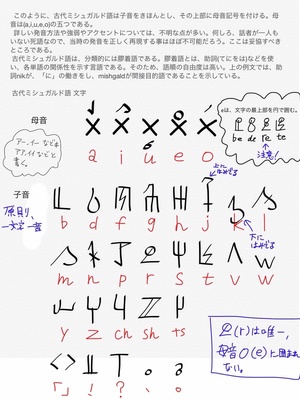 このように、古代ミシュガルド語は子音をきほんとし、その上部に母音記号を付ける。母音は(a,i,u,e,o)の五つである。
詳しい発音方法や強弱やアクセントについては、不明な点が多い。何しろ、話者が一人もいない死語なので、当時の発音を正しく再現する事はほぼ不可能だろう。ここは妥協すべきところである。
古代ミシュガルド語は、分類的には膠着語である。膠着語とは、助詞(てにをは)などを使い、各単語の関係性を示す言語である。そのため、語順の自由度は高い。上の例文では、助詞nikが、「に」の働きをし、mishgaldが間接目的語であることを示している。
古代ミシュガルド語 文字
eは、文字の最上部を円で囲む。
be de re te
注意!
母音
アー、イー なども
アア、イイ などと
書く。
a i u e o
子音
原則、
一文字一音
上に
はみでる
b d f g h j k l
下に
はみでる
m n p r s t v w
y z ch sh ts
「」 ! ? 、 。
(r)は唯一、
母音〇(e)に囲まれ
ない。